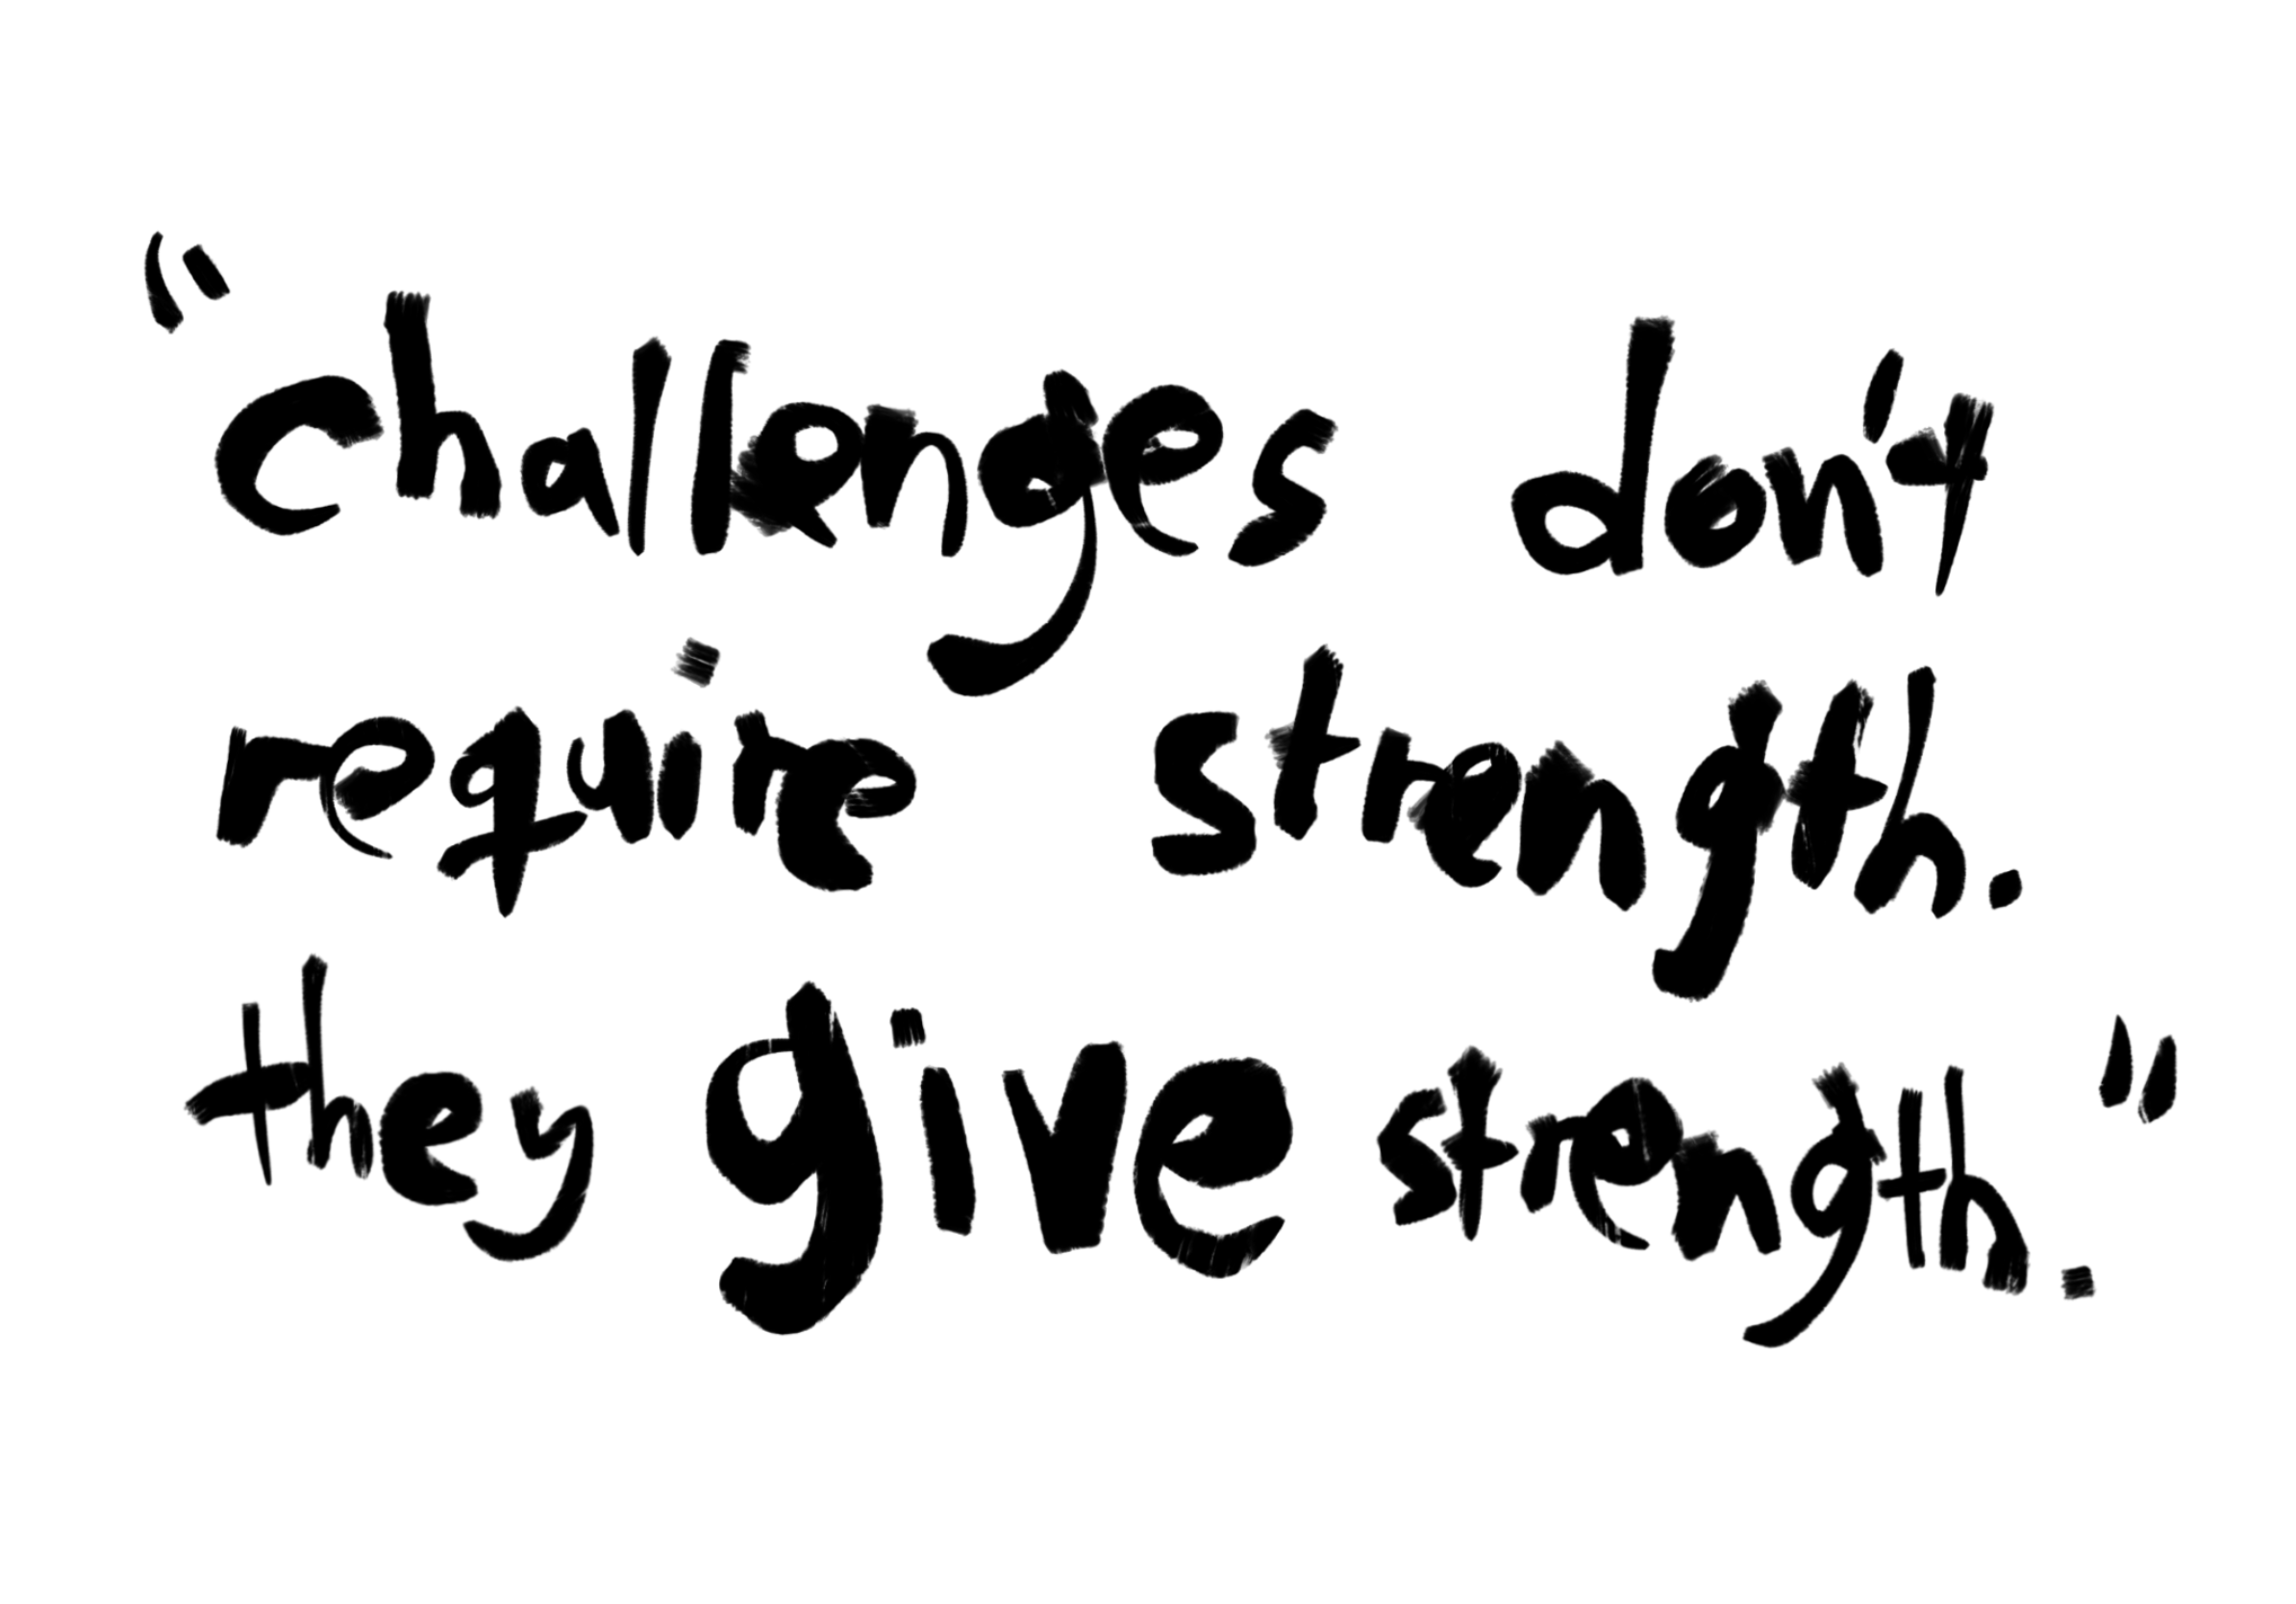 "challenges don't
require strength.
they give strength."